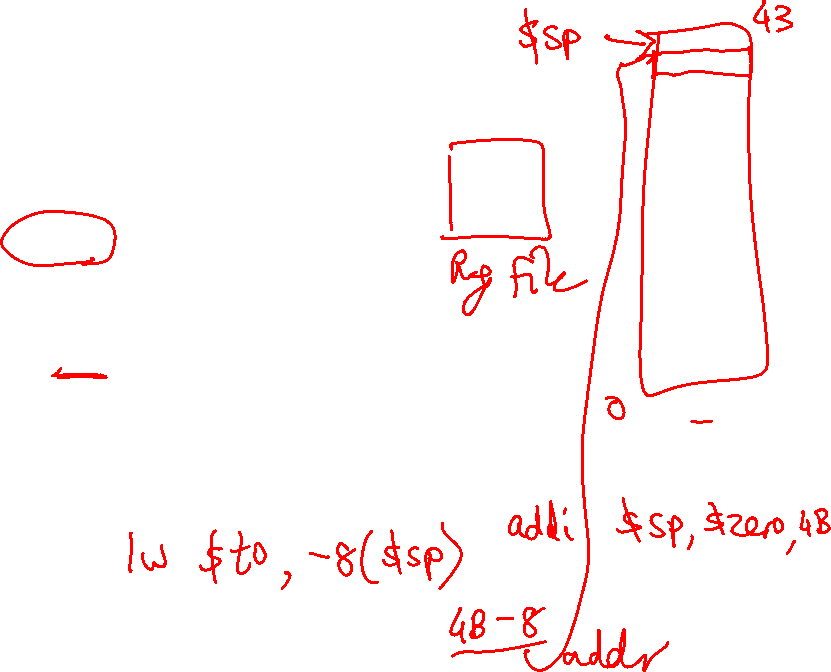 43
$sp
Reg file
0
addi $sp, $zero, 4B
lw $t0, -8($sp)
4B-8
addr